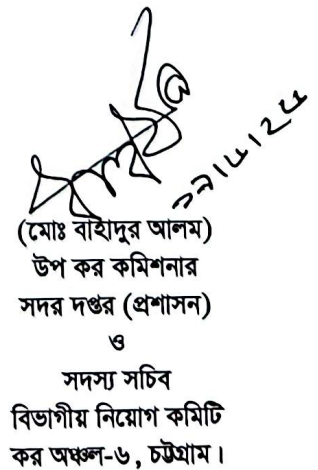 (মোঃ বাহাদুর আলম)
উপ কর কমিশনার
সদর দপ্তর (প্রশাসন)
ও
সদস্য সচিব
বিভাগীয় নিয়োগ কমিটি
কর অঞ্চল-৬, চট্টগ্রাম।